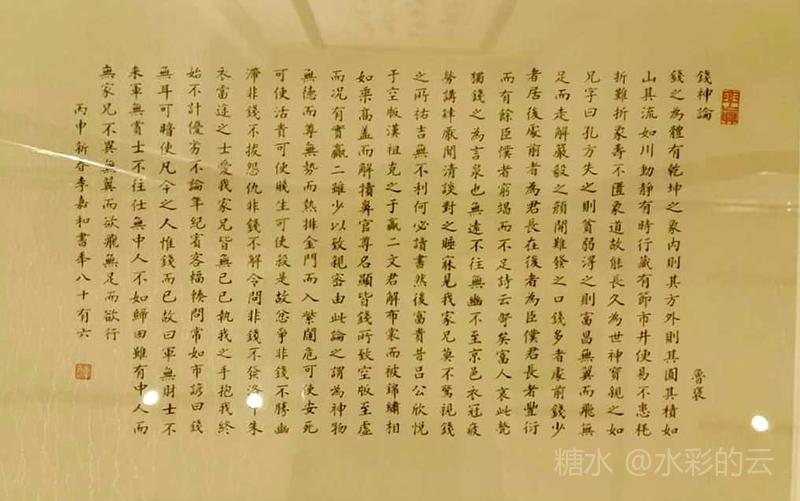 錢神論
魯褒
錢之為體有乾坤之象內則其方外則其圓其積如
山其流如川動靜有時行藏有節市井便易不患耗
折難折象壽不匱象道故能長久為世神寶親之如
兄字曰孔方失之則貧弱得之則富昌無翼而飛無
足而走解嚴毅之顏開難發之口錢多者處前錢少
者居後處前者為君長在後者為臣僕君長者豐衍
而有餘臣僕者窮竭而不足詩云哿矣富人哀此煢
獨錢之為言泉也無遠不往無幽不至京邑衣冠疲
勞講肄厭聞清談對之睡寐見我家兄莫不驚視錢
之所祐吉無不利何必讀書然後富貴昔呂公欣悅
于空版漢祖克之于贏二文君解布裳而被錦繡相
如乘高蓋而解犢鼻官尊名顯皆錢所致空版至虛
而況有實贏二雖少以致親密由此論之謂為神物
無德而尊無勢而熱排金門而入紫闥危可使安死
可使活貴可使賤生可使殺是故忿爭非錢不勝幽
滯非錢不拔怨仇非錢不解令問非錢不發洛中朱
衣當途之士愛我家兄皆無已已執我之手抱我終
始不計優劣不論年紀賓客輻輳門常如市諺曰錢
無耳可暗使凡今之人惟錢而已故曰軍無財士不
來軍無賞士不往仕無中人不如歸田雖有中人而
無家兄不異無翼而欲飛無足而欲行
丙申新春李嘉和書年八十有六
糖水 @水彩的云